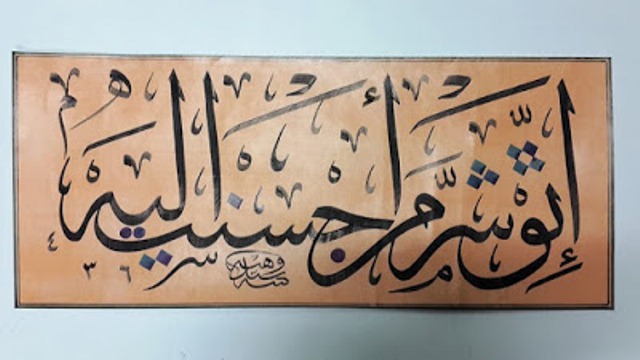 إتّق شرّ من أحسنت إليه